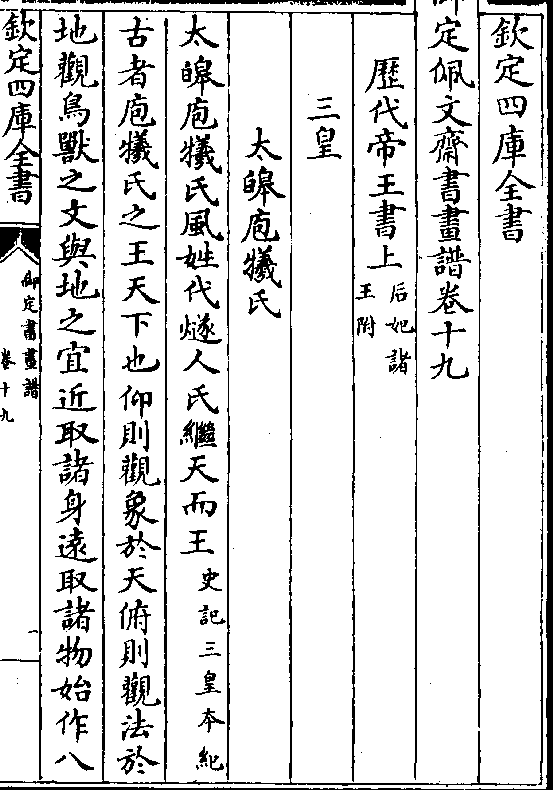 欽定四庫全書
御定佩文齋書畫譜卷十九
歷代帝王書上后妃諸王附
三皇
太皞庖犧氏
太皞庖犧氏風姓代燧人氏繼天而王史記三皇本紀
古者庖犧氏之王天下也仰則觀象於天俯則觀法於
地觀鳥獸之文與地之宜近取諸身遠取諸物始作八
欽定四庫全書
御定書畫譜
卷十九
一